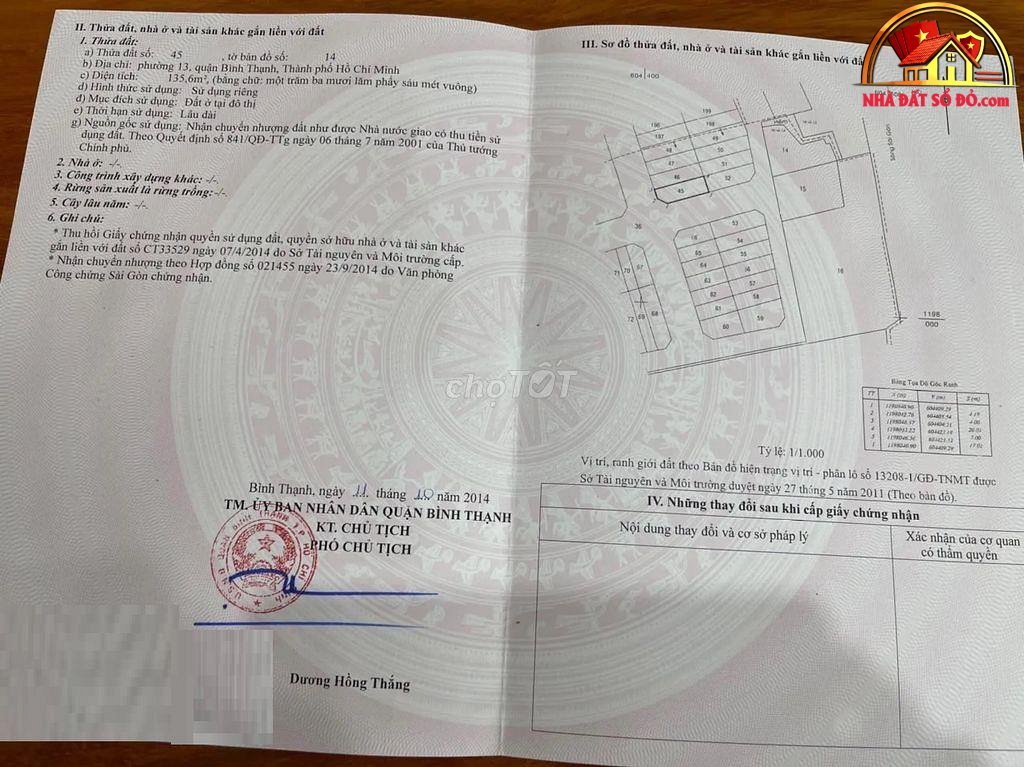 II. Thửa đất, nhà ở và tài sản khác gắn liền với đất
1. Thửa đất:
a) Thửa đất số: 45 , tờ bản đồ số: 14
b) Địa chỉ: phường 13, quận Bình Thạnh, Thành phố Hồ Chí Minh
c) Diện tích: 135,6m², (bằng chữ: một trăm ba mươi lăm phẩy sáu mét vuông)
d) Hình thức sử dụng: Sử dụng riêng
đ) Mục đích sử dụng: Đất ở tại đô thị
e) Thời hạn sử dụng: Lâu dài
g) Nguồn gốc sử dụng: Nhận chuyển nhượng đất như được Nhà nước giao có thu tiền sử
dụng đất. Theo Quyết định số 841/QĐ-TTg ngày 06 tháng 7 năm 2001 của Thủ tướng
Chính phủ.
2. Nhà ở: -/-
3. Công trình xây dựng khác: -/-
4. Rừng sản xuất là rừng trồng: -/-
5. Cây lâu năm: -/-
6. Ghi chú:
* Thu hồi Giấy chứng nhận quyền sử dụng đất, quyền sở hữu nhà ở và tài sản khác
gắn liền với đất số CT33529 ngày 07/4/2014 do Sở Tài nguyên và Môi trường cấp.
* Nhận chuyển nhượng theo Hợp đồng số 021455 ngày 23/9/2014 do Văn phòng
Công chứng Sài Gòn chứng nhận.
Bình Thạnh, ngày 11 tháng 10 năm 2014
TM. ỦY BAN NHÂN DÂN QUẬN BÌNH THẠNH
KT. CHỦ TỊCH
PHÓ CHỦ TỊCH
Dương Hồng Thắng
III. Sơ đồ thửa đất, nhà ở và tài sản khác gắn liền với đất
NHÀ ĐẤT SỔ ĐỎ.com
604 400
198
197 198 49
48 50
47 51
46 52
45
14
15
16
Sông Sài Gòn
36
53
54
55
56
57
58
59
60
61
62
63
64
71 70 67
72 69 68
1198
000
chợTỐT
Bảng Tọa Độ Góc Ranh
TT X (m) Y (m) S (m)
Tỷ lệ: 1/1.000
Vị trí, ranh giới đất theo Bản đồ hiện trạng vị trí - phân lô số 13208-1/GĐ-TNMT được
Sở Tài nguyên và Môi trường duyệt ngày 27 tháng 5 năm 2011 (Theo bản đồ).
IV. Những thay đổi sau khi cấp giấy chứng nhận
Nội dung thay đổi và cơ sở pháp lý
Xác nhận của cơ quan
có thẩm quyền